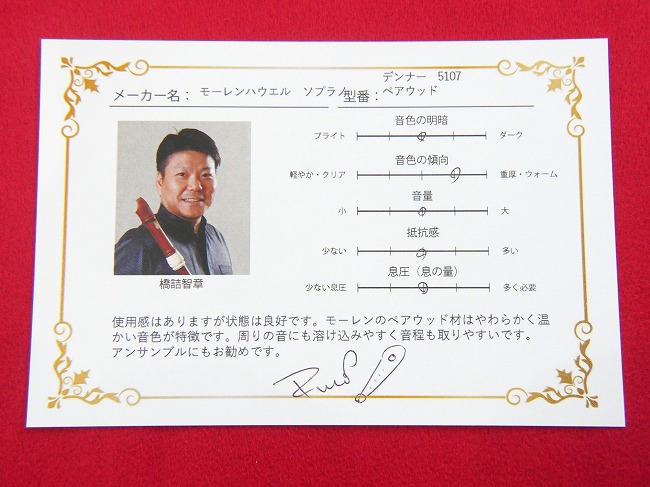 デンナー 5107
メーカー名： モーレンハウエル ソプラノ 型番： ペアウッド
音色の明暗
ブライト ダーク
音色の傾向
軽やか・クリア 重厚・ウォーム
音量
小 大
抵抗感
少ない 多い
息圧（息の量）
少ない息圧 多く必要
橋詰智章
使用感はありますが状態は良好です。モーレンのペアウッド材はやわらかく温
かい音色が特徴です。周りの音にも溶け込みやすく音程も取りやすいです。
アンサンブルにもお勧めです。